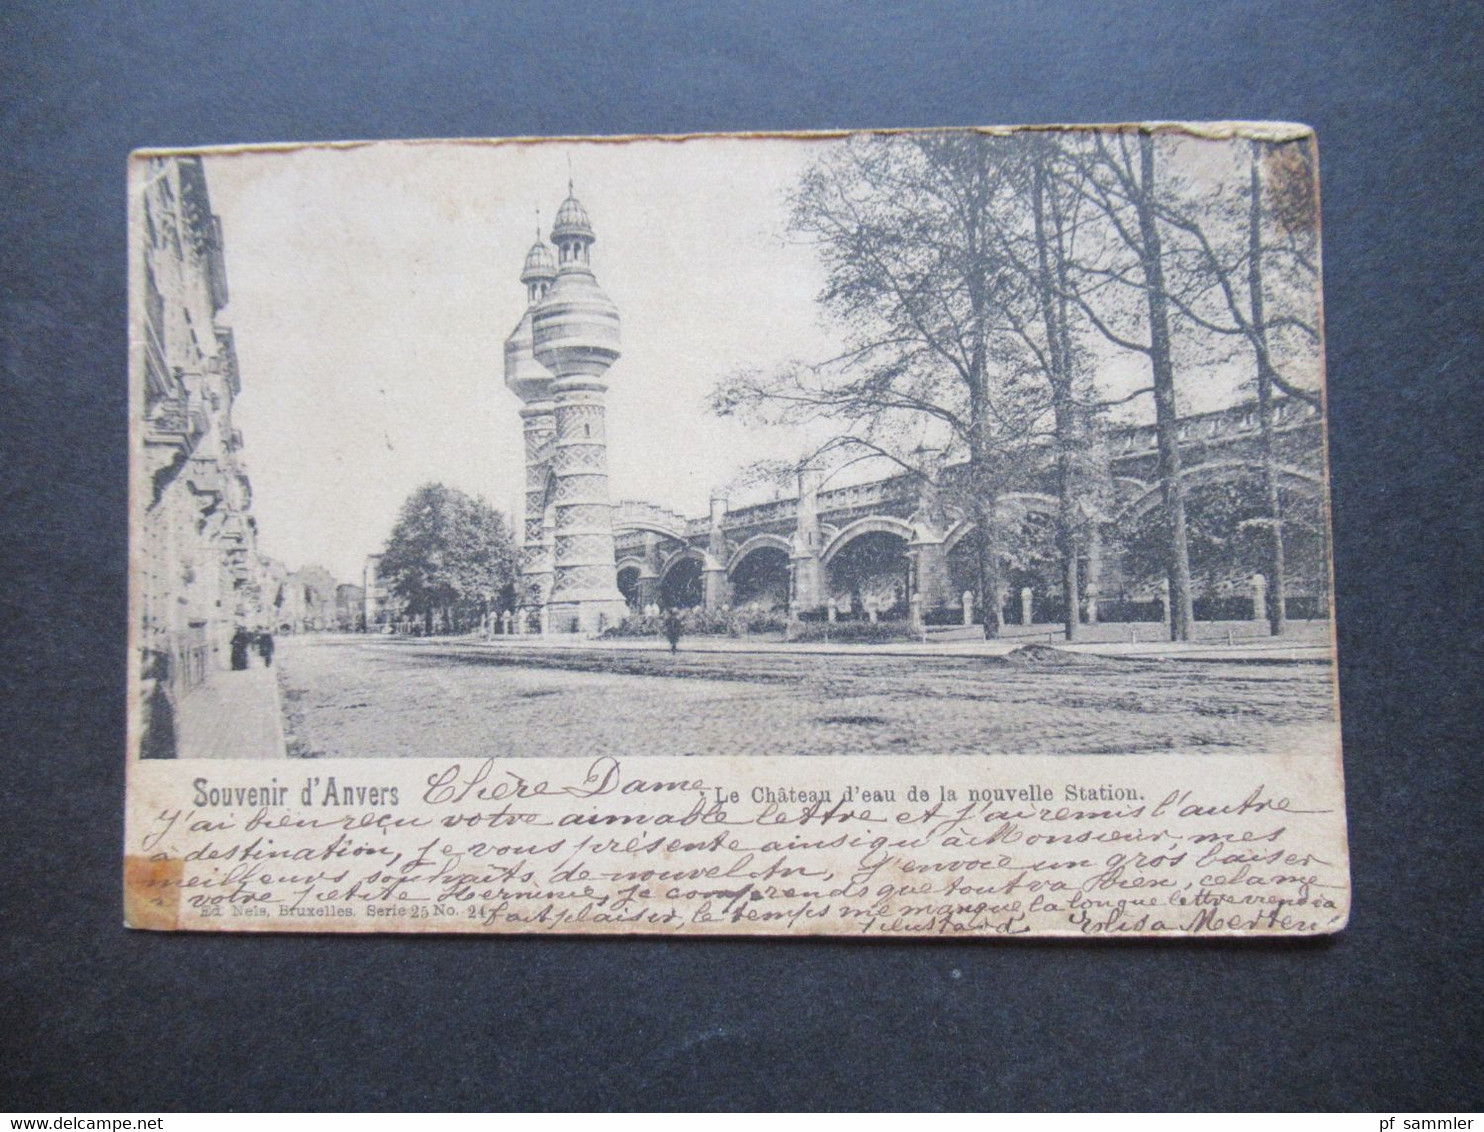 Souvenir d'Anvers Chère Dame, Le Château d'eau de la nouvelle Station.
J'ai bien reçu votre aimable lettre et j'ai remis l'autre
à destination, je vous présente ainsi qu'à Monsieur, mes
meilleurs souhaits de nouvel An, J'envoie un gros baiser
à votre petite Hermine, je comprends que tout va bien, cela me
Ed. Nels, Bruxelles. Serie 25 No. 24 fait plaisir, le temps me manque, la longue lettre viendra
plus tard. Mertens
pf sammler